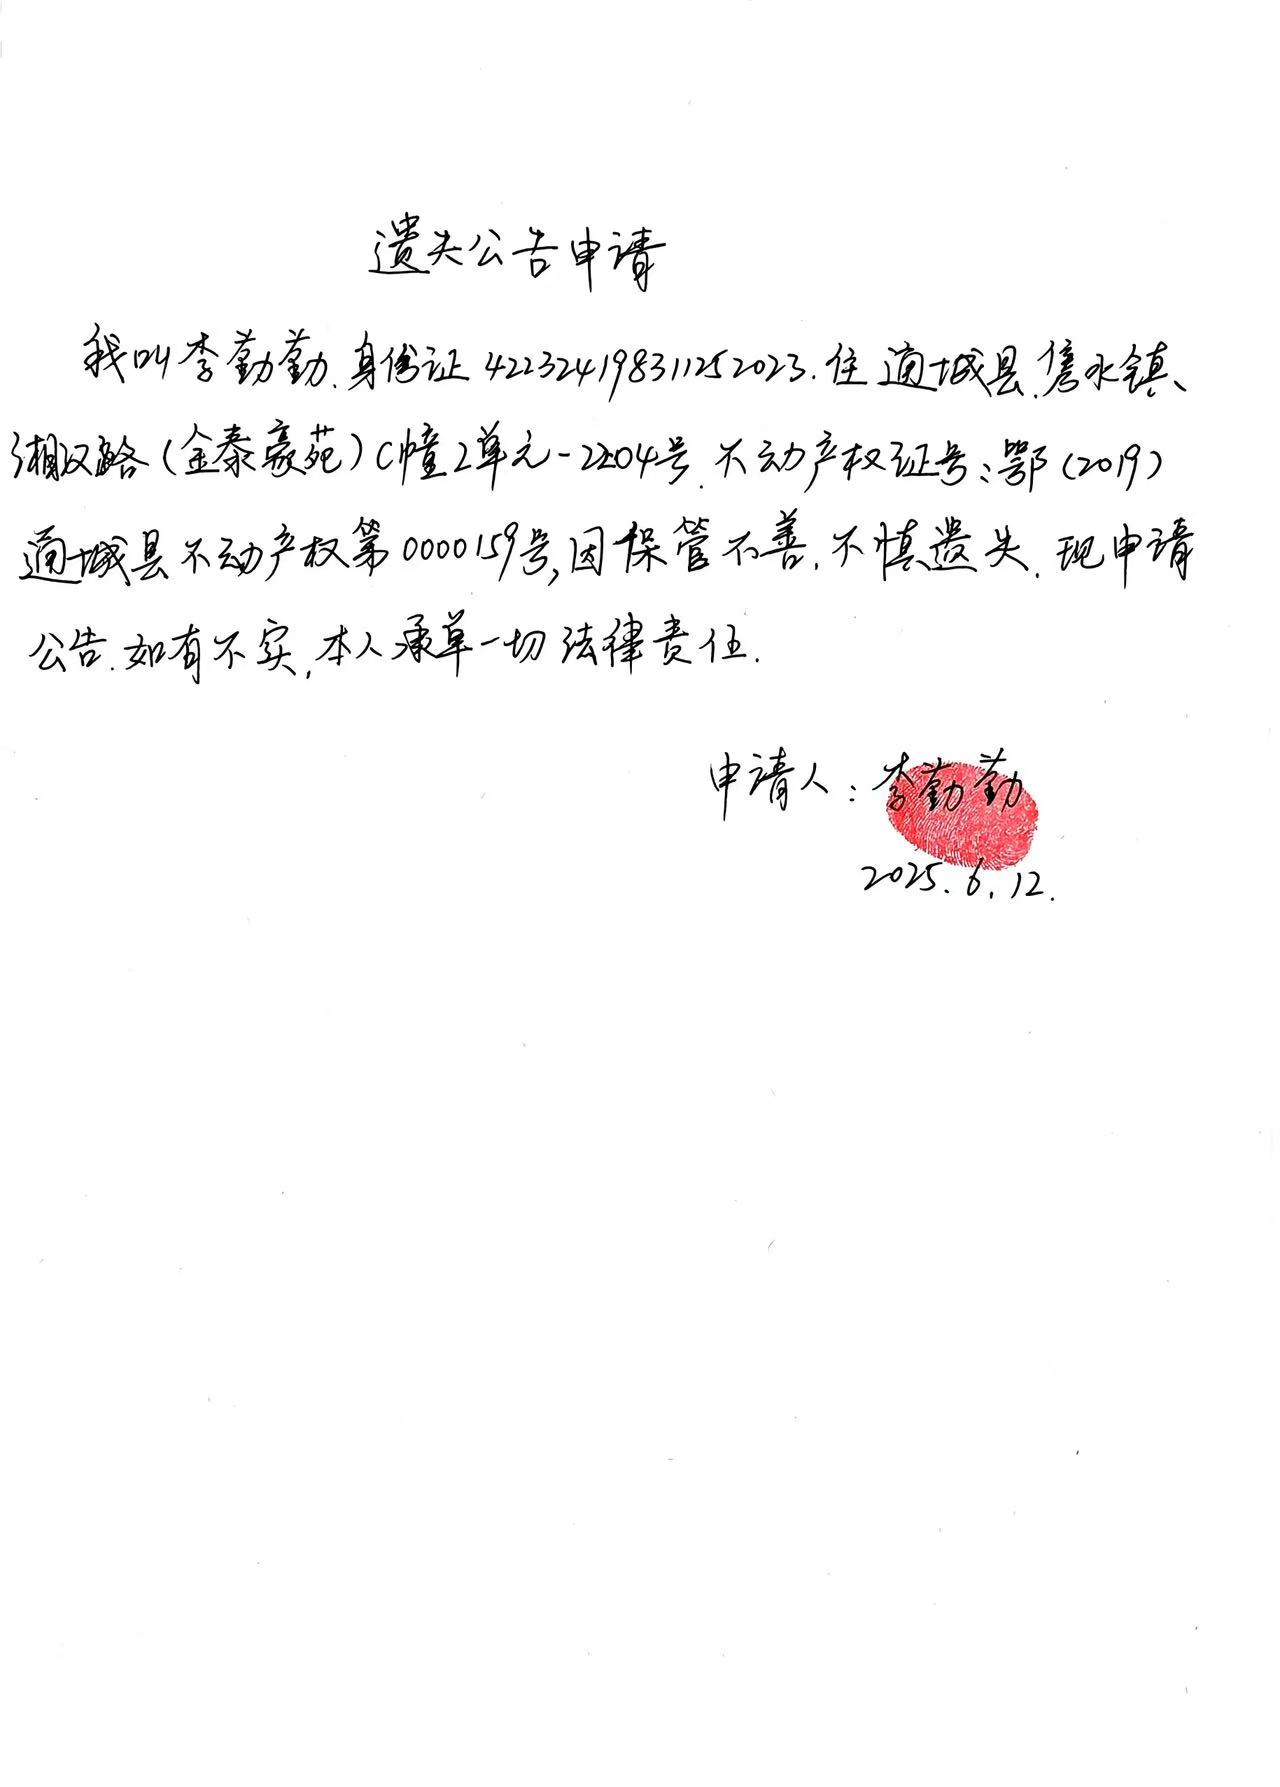 遗失公告申请
我叫李勤勤.身份证422324198311252023.住通城县.隽水镇、
湘汉路(金泰豪苑)C幢2单元-2204号.不动产权证号:鄂(2019)
通城县不动产权第0000159号,因保管不善.不慎遗失.现申请
公告.如有不实,本人承单一切法律责任.
申请人:李勤勤
2025.6.12.